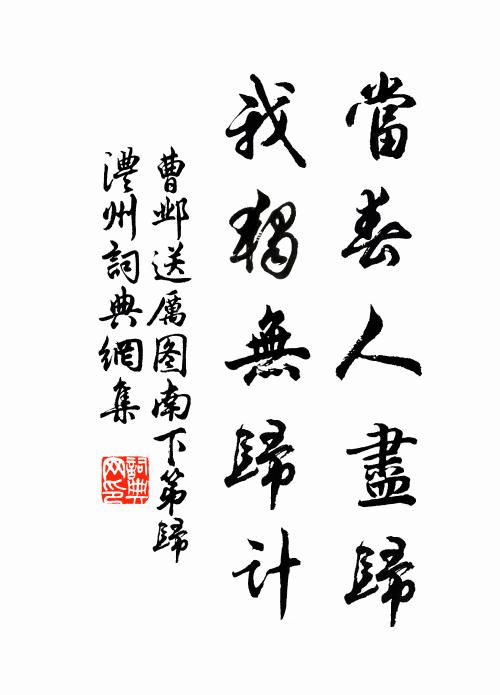 當春人盡歸
我獨無歸計
曹邺送厲图南下第歸
澧州詞典網集
詞典
网印